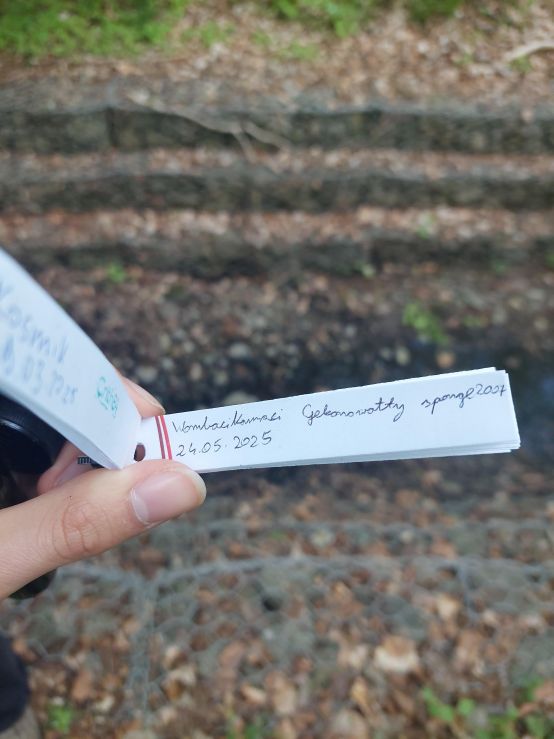 Kosmik
03.2025
Wombacikowaci Gekonowatty sponge2007
24.05.2025